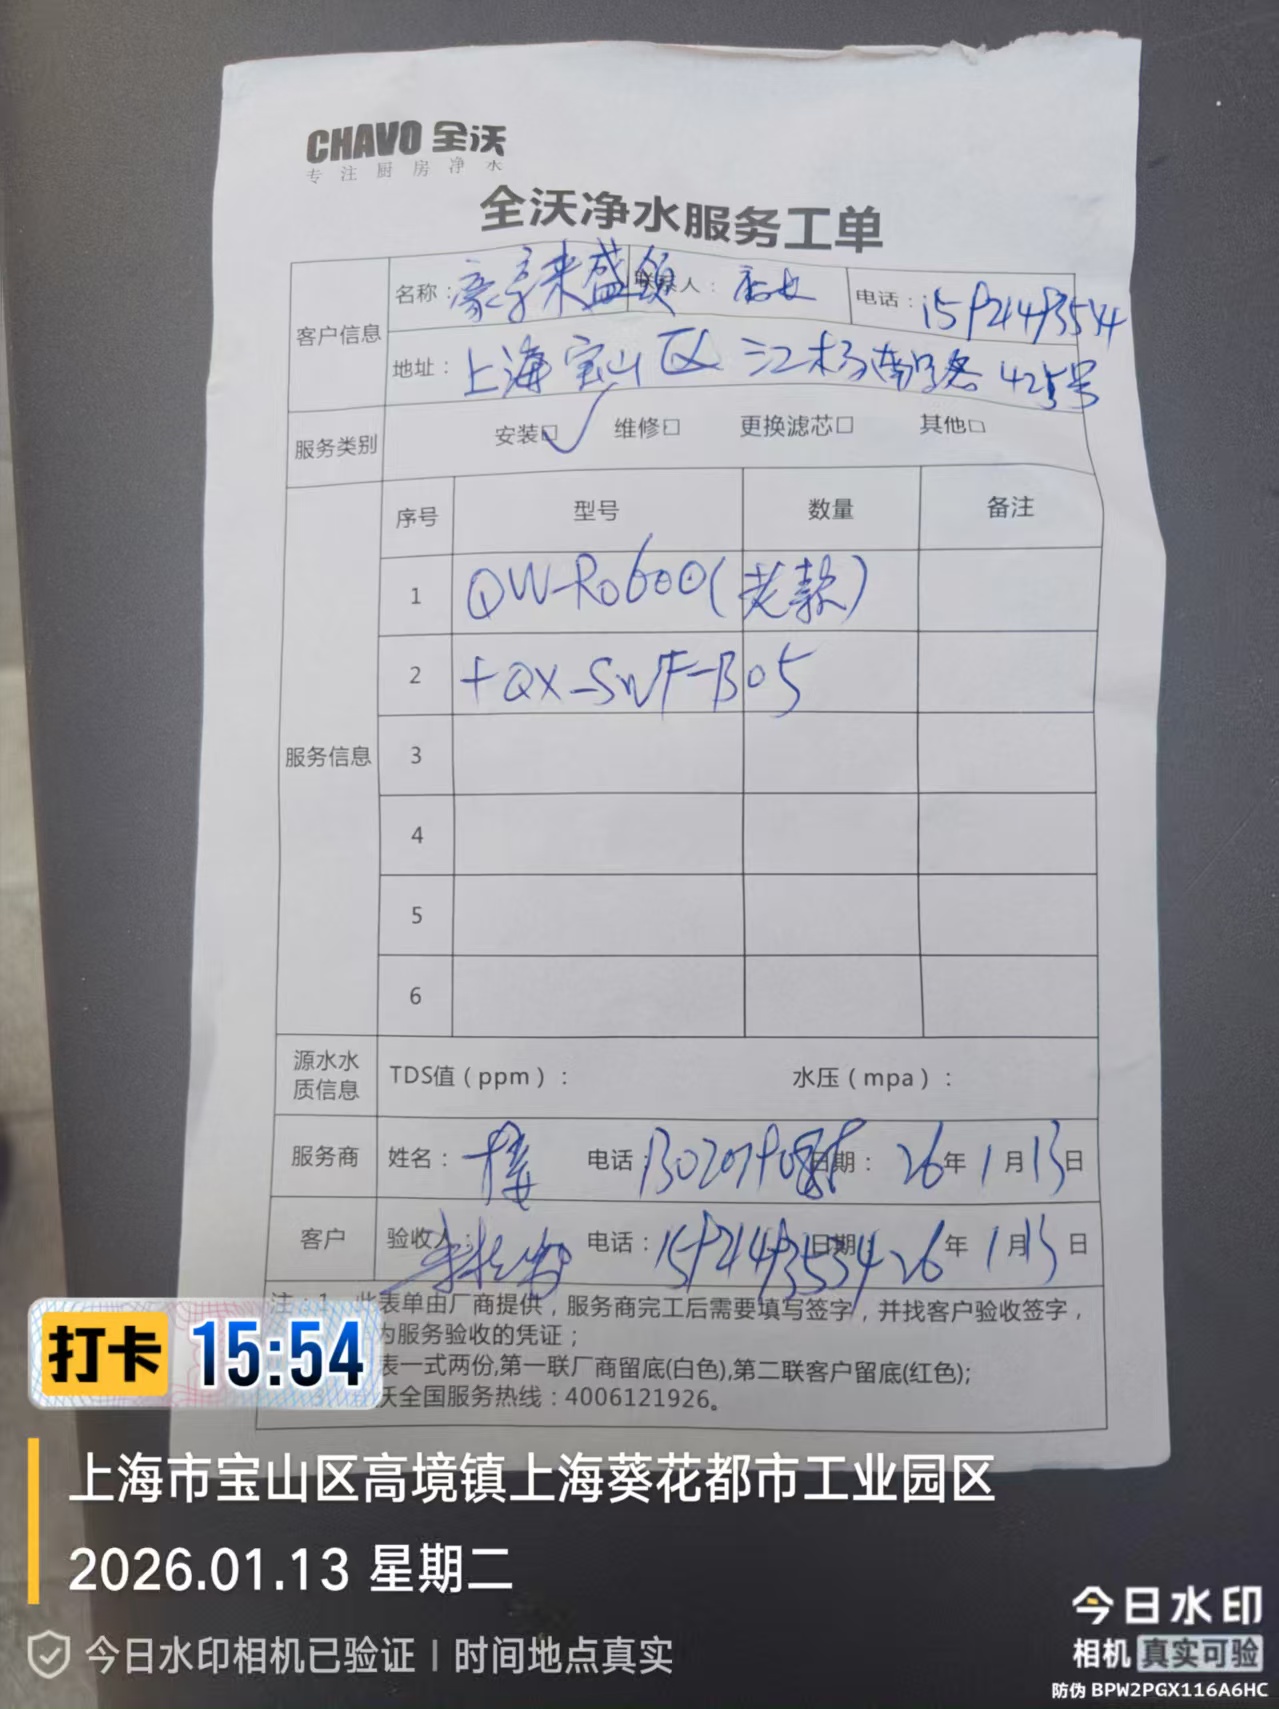 CHAVO 全沃
专注厨房净水
全沃净水服务工单
客户信息 名称：豪享来盛领 联系人：店长 电话：15921493544
地址：上海宝山区江杨南路425号
服务类别 安装☑ 维修□ 更换滤芯□ 其他□
服务信息 序号 型号 数量 备注
1 QW-Ro600(老款)
2 +QX-SWF-B05
3
4
5
6
源水水质信息 TDS值（ppm）： 水压（mpa）：
服务商 姓名： 电话 日期：26年1月13日
客户 验收人： 电话：15921493534 日期 26年1月13日
注：1、此表单由厂商提供，服务商完工后需要填写签字，并找客户验收签字，
为服务验收的凭证；
表一式两份,第一联厂商留底(白色),第二联客户留底(红色);
沃全国服务热线：4006121926。
打卡 15:54
上海市宝山区高境镇上海葵花都市工业园区
2026.01.13 星期二
今日水印相机已验证 | 时间地点真实
今日水印
相机 真实可验
防伪 BPW2PGX116A6HC